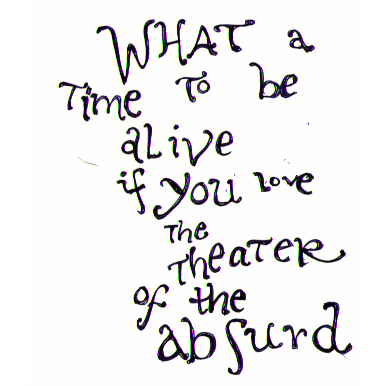 WHAT a
Time To be
aLive
if you Love
The
TheaTeR
of the
absurd